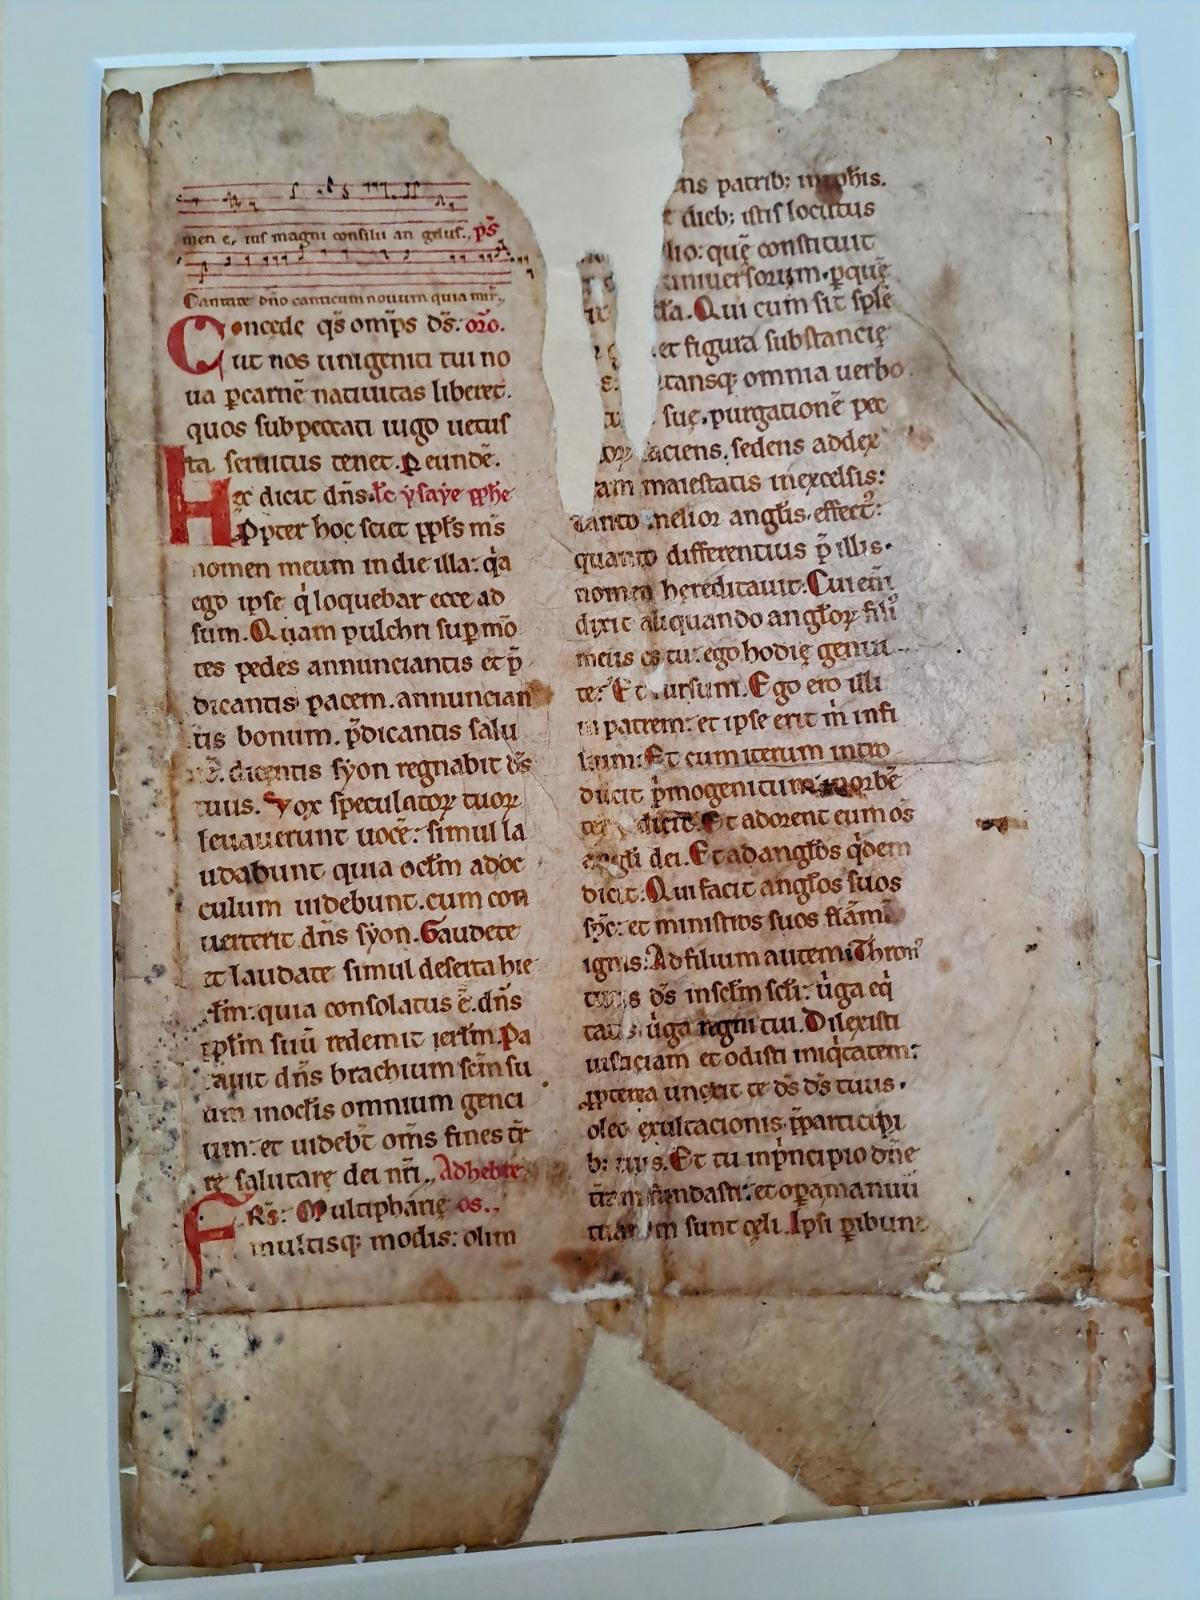 men e, ius magni consilii an gelus., ps̄
Cantate dño canticum nouum quia mir.,
Concede qs̄ omp̄s ds̄: oro.
ut nos unigeniti tui no
ua ꝑcarnē natiuitas liberet.
quos sub peccati iugo uetus
ta seruitus tenet. ꝑ eundē.
Hec dicit dñs. lc̄ ysaye ꝓphe
Ꝓpter hoc sciet pp̄ls ms̄
nomen meum in die illa: qͥa
ego ipse qͥ loquebar ecce ad
sum. Quam pulchri suꝑ mō
tes pedes annunciantis et p̄
dicantis pacem. annuncian
tis bonum. p̄dicantis salu
dicentis syon regnabit ds̄
tuus. Vox speculatoꝝ tuoꝝ
leuauerunt uocē: simul la
udabunt quia oclm̄ ad oc
culum uidebunt. cum con
uerterit dñs syon. Gaudete
et laudate simul deserta hie
rl̄m: quia consolatus ē. dñs
ppl̄m suū redemit ierl̄m. Pa
rauit dñs brachium sc̄m su
um in ocl̄is omnium genti
um: et uidebt̄ oms̄ fines tr̄
re salutare dei nr̄i., Ad hebre
FRs̄: Multipharię os.,
multisqꝫ modis: olim
ns patribꝫ in ꝓph̄is.
diebꝫ istis locutus
lio: quę constituit
uniuersorum. ꝑ quē
Qui cum sit splē
et figura substancię
tansqꝫ omnia uerbo
suę. purgationē pec
aciens. sedens ad dex
am maiestatis in excelsis:
tanto melior angl̄is. effectꝰ:
quanto differentius p̄ illis.
nomen hereditauit. Cui eni̅
dixit aliquando angl̄oꝝ filiꝰ
meus es tu: ego hodię genui
te: Et rursum. Ego ero illi
in patrem: et ipse erit m̍ in fi
lium: Et cum iterum intro
ducit pͥmogenitum in orbē
dicit. Et adorent eum os̄
angl̄i dei. Et ad angl̄os qͥdem
dicit. Qui facit angl̄os suos
sp̄c: et ministros suos flāmā
ignis: Ad filium autem: Thronꝰ
tuus ds̄ in scl̄m scl̄i: uͥga eqͥ
tatis uͥga regni tui. Dilexisti
iusticiam et odisti iniqͥtatem:
ꝓpterea unexit te ds̄ ds̄ tuus.
oleo exultacionis. p̄ participi
bꝫ tuis. Et tu in pͥncipio dñe
tr̄am fundasti: et oꝑa manuū
tuarum sunt cęli. Ipsi ꝑibunt